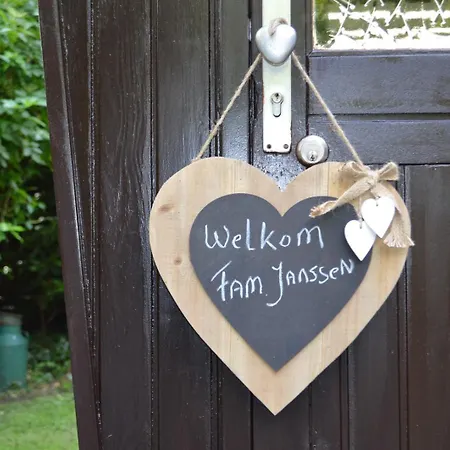 Welkom
Fam. Janssen